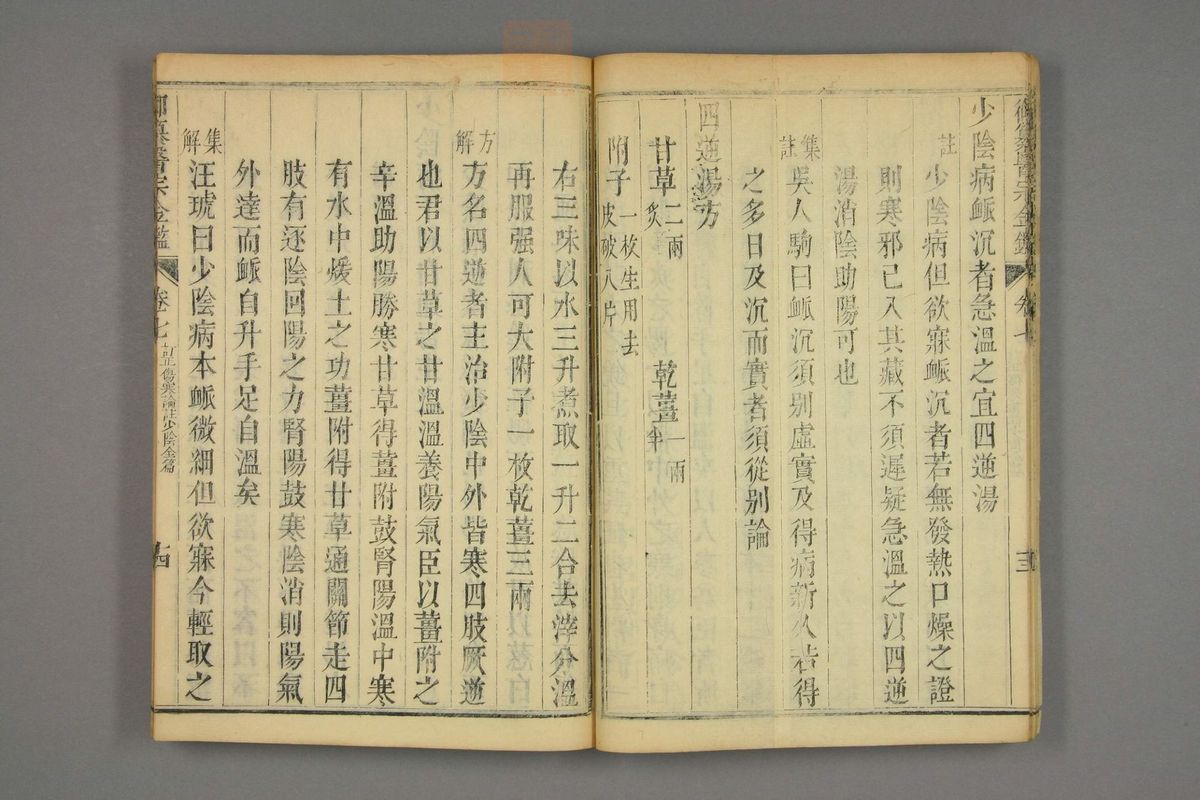 御纂醫宗金鑑 卷七 三
少陰病脈沉者急溫之宜四逆湯
註 少陰病但欲寐脈沉者若無發熱口燥之證
則寒邪已入其藏不須遲疑急溫之以四逆
湯消陰助陽可也
集註 吳人駒曰脈沉須別虛實及得病新久若得
之多日及沉而實者須從別論
四逆湯方
甘草二兩炙 乾薑一兩半
附子一枚生用去皮破八片
右三味以水三升煮取一升二合去滓分溫
再服强人可大附子一枚乾薑三兩
方解 方名四逆者主治少陰中外皆寒四肢厥逆
也君以甘草之甘溫溫養陽氣臣以薑附之
辛溫助陽勝寒甘草得薑附鼓腎陽溫中寒
有水中煖土之功薑附得甘草通關節走四
肢有逐陰回陽之力腎陽鼓寒陰消則陽氣
外達而脈自升手足自溫矣
集解 汪琥曰少陰病本脈微細但欲寐今輕取之
御纂醫宗金鑑 卷七 訂正傷寒論註少陰全篇 十四